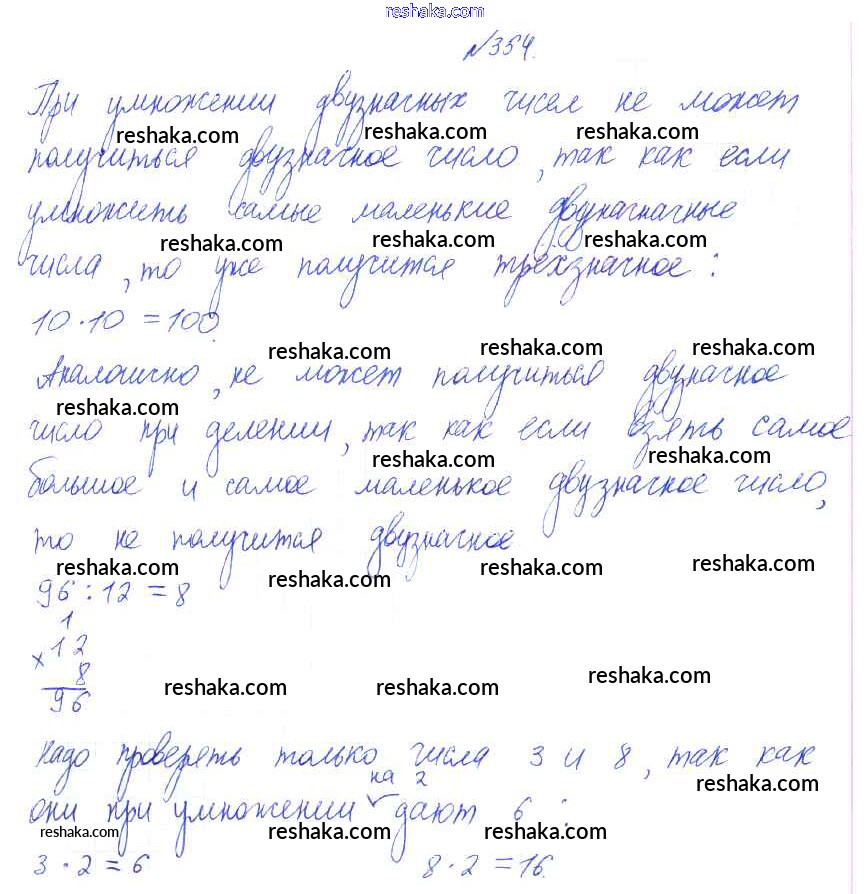 reshaka.com
№354.
При умножении двузначных чисел не может
reshaka.com reshaka.com reshaka.com
получиться двузначное число, так как если
умножить самые маленькие двуначначные
reshaka.com reshaka.com reshaka.com
числа, то уже получится трёхзначное:
10·10=100.
reshaka.com reshaka.com reshaka.com
Аналогично, не может получиться двузначное
reshaka.com
число при делении, так как если взять самое
reshaka.com reshaka.com
большое и самое маленькое двузначное число,
то не получится двузначное
reshaka.com reshaka.com reshaka.com reshaka.com
96:12=8
1
×12
8
reshaka.com reshaka.com reshaka.com
96
Надо проверять только числа 3 и 8, так как
reshaka.com
на 2
они при умножении дают 6:
reshaka.com reshaka.com reshaka.com
3·2=6 8·2=16.